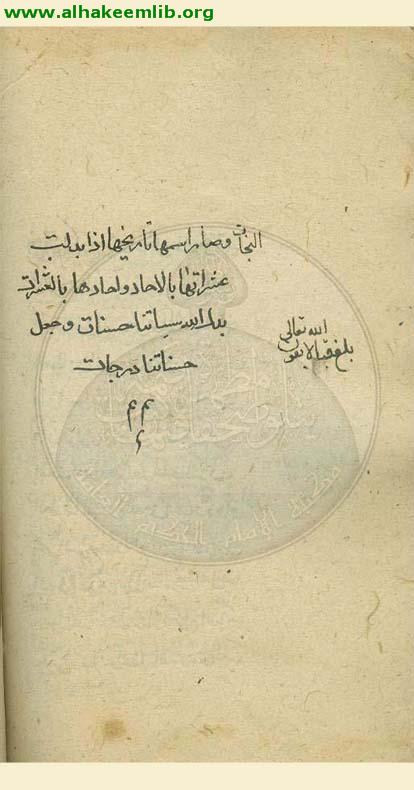 www.alhakeemlib.org
النجاة وصار اسمها تاريخها اذا بدلت
عشراتها بالاحاد واحادها بالعشرات
بدل الله سيياتنا حسنات وجعل
حسناتنا درجات
م م
م
بلغ قبالا بعون
الله تعالى
مكتبة الإمام الحكيم العامة